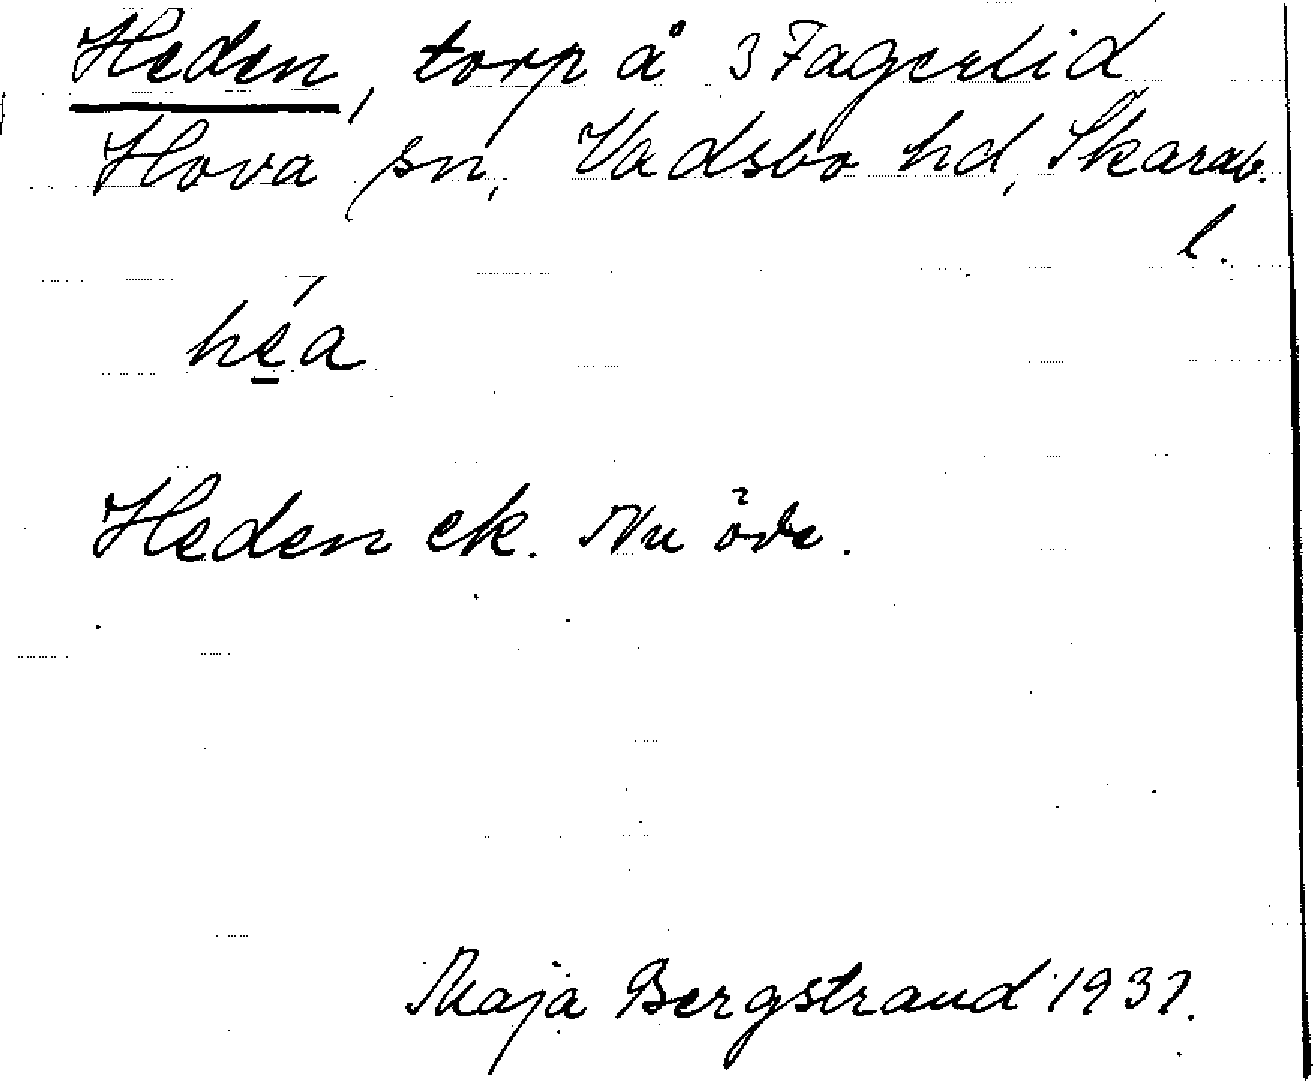 Heden, torp å 3 Fagerlid
Hova sn, Vadsbo hd, Skarab.
l.
hé̱a
Heden ek. Nu öde.
Maja Bergstrand 1937.